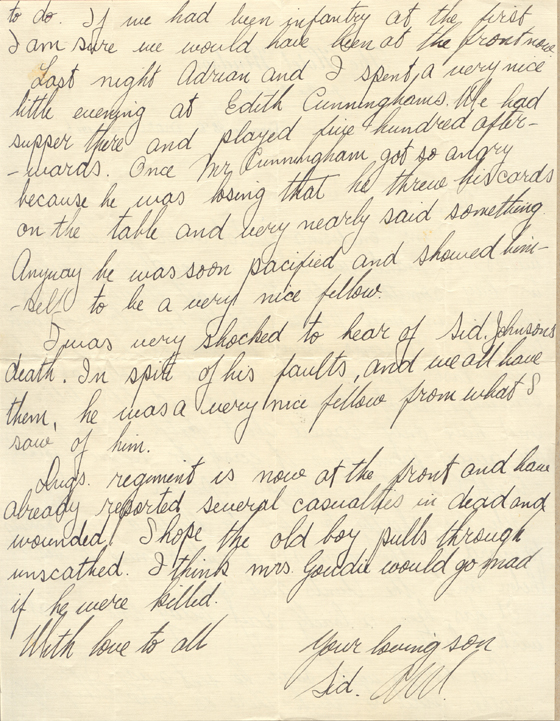 to do. If we had been infantry at the first
I am sure we would have been at the front now.
Last night Adrian and I spent a very nice
little evening at Edith Cunninghams. We had
supper there and played five-hundred after-
-wards. Once Mr Cunningham got so angry
because he was losing that he threw his cards
on the table and very nearly said something
Anyway he was soon pacified and showed him-
-self to be a very nice fellow.
I was very shocked to hear of Sid. Johnsons
death. In spite of his faults, and we all have
them, he was a very nice fellow from what I
saw of him.
Lugs. regiment is now at the front and have
already reported several casualties in dead and
wounded. I hope the old boy pulls through
unscathed. I think mrs. Goudie would go mad
if he were killed.
With love to all
Your loving son
Sid.